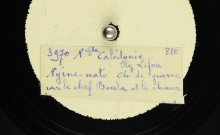 3930 Nlle Calédonie 810
Iles Lifou
nato Ch. de guerre
sur le chef Boula et le chœur